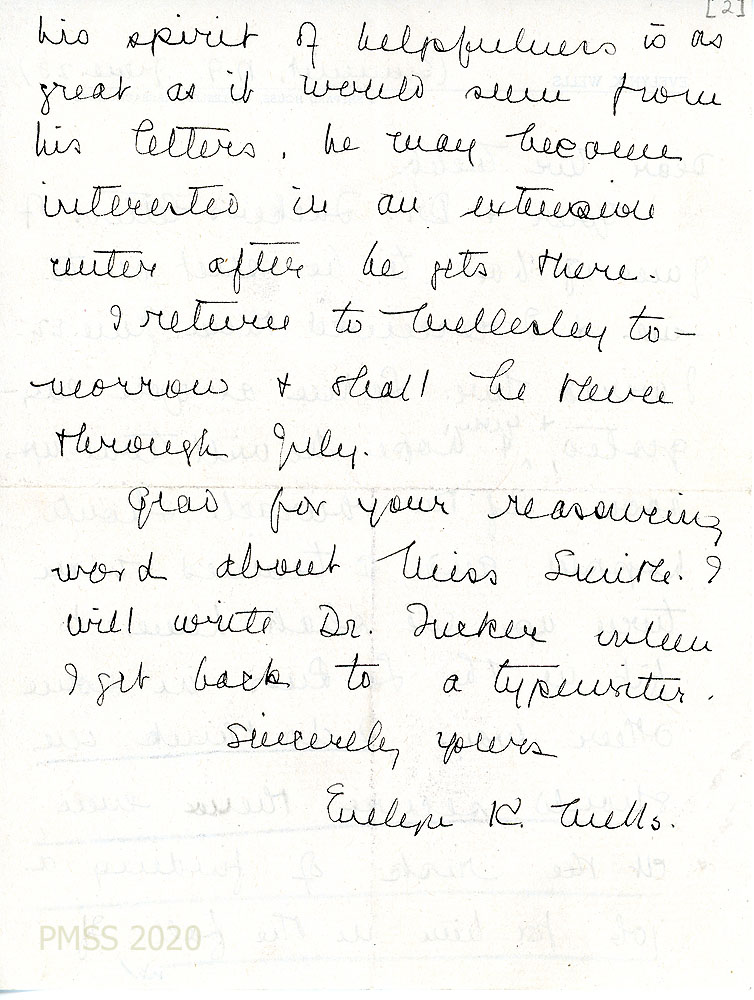 [2]
his spirit of helpfulness is as
great as it would seem from
his letters, he may become
interested in an extension
center after he gets there.
I return to Wellesley to-
morrow & shall be there
through July.
Glad for your reassuring
word about Miss Smith. I
will write Dr. Tucker when
I get back to a typewriter.
Sincerely yours
Evelyn K. Wells.
PMSS 2020